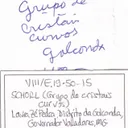 Grupo de
cristais
curvos
Golconda
VIII/E,19-50-15
SCHORL (Grupo de cristais
curvos)
Lavra de Pedro
Distrito de Golconda,
Governador Valadares, MG